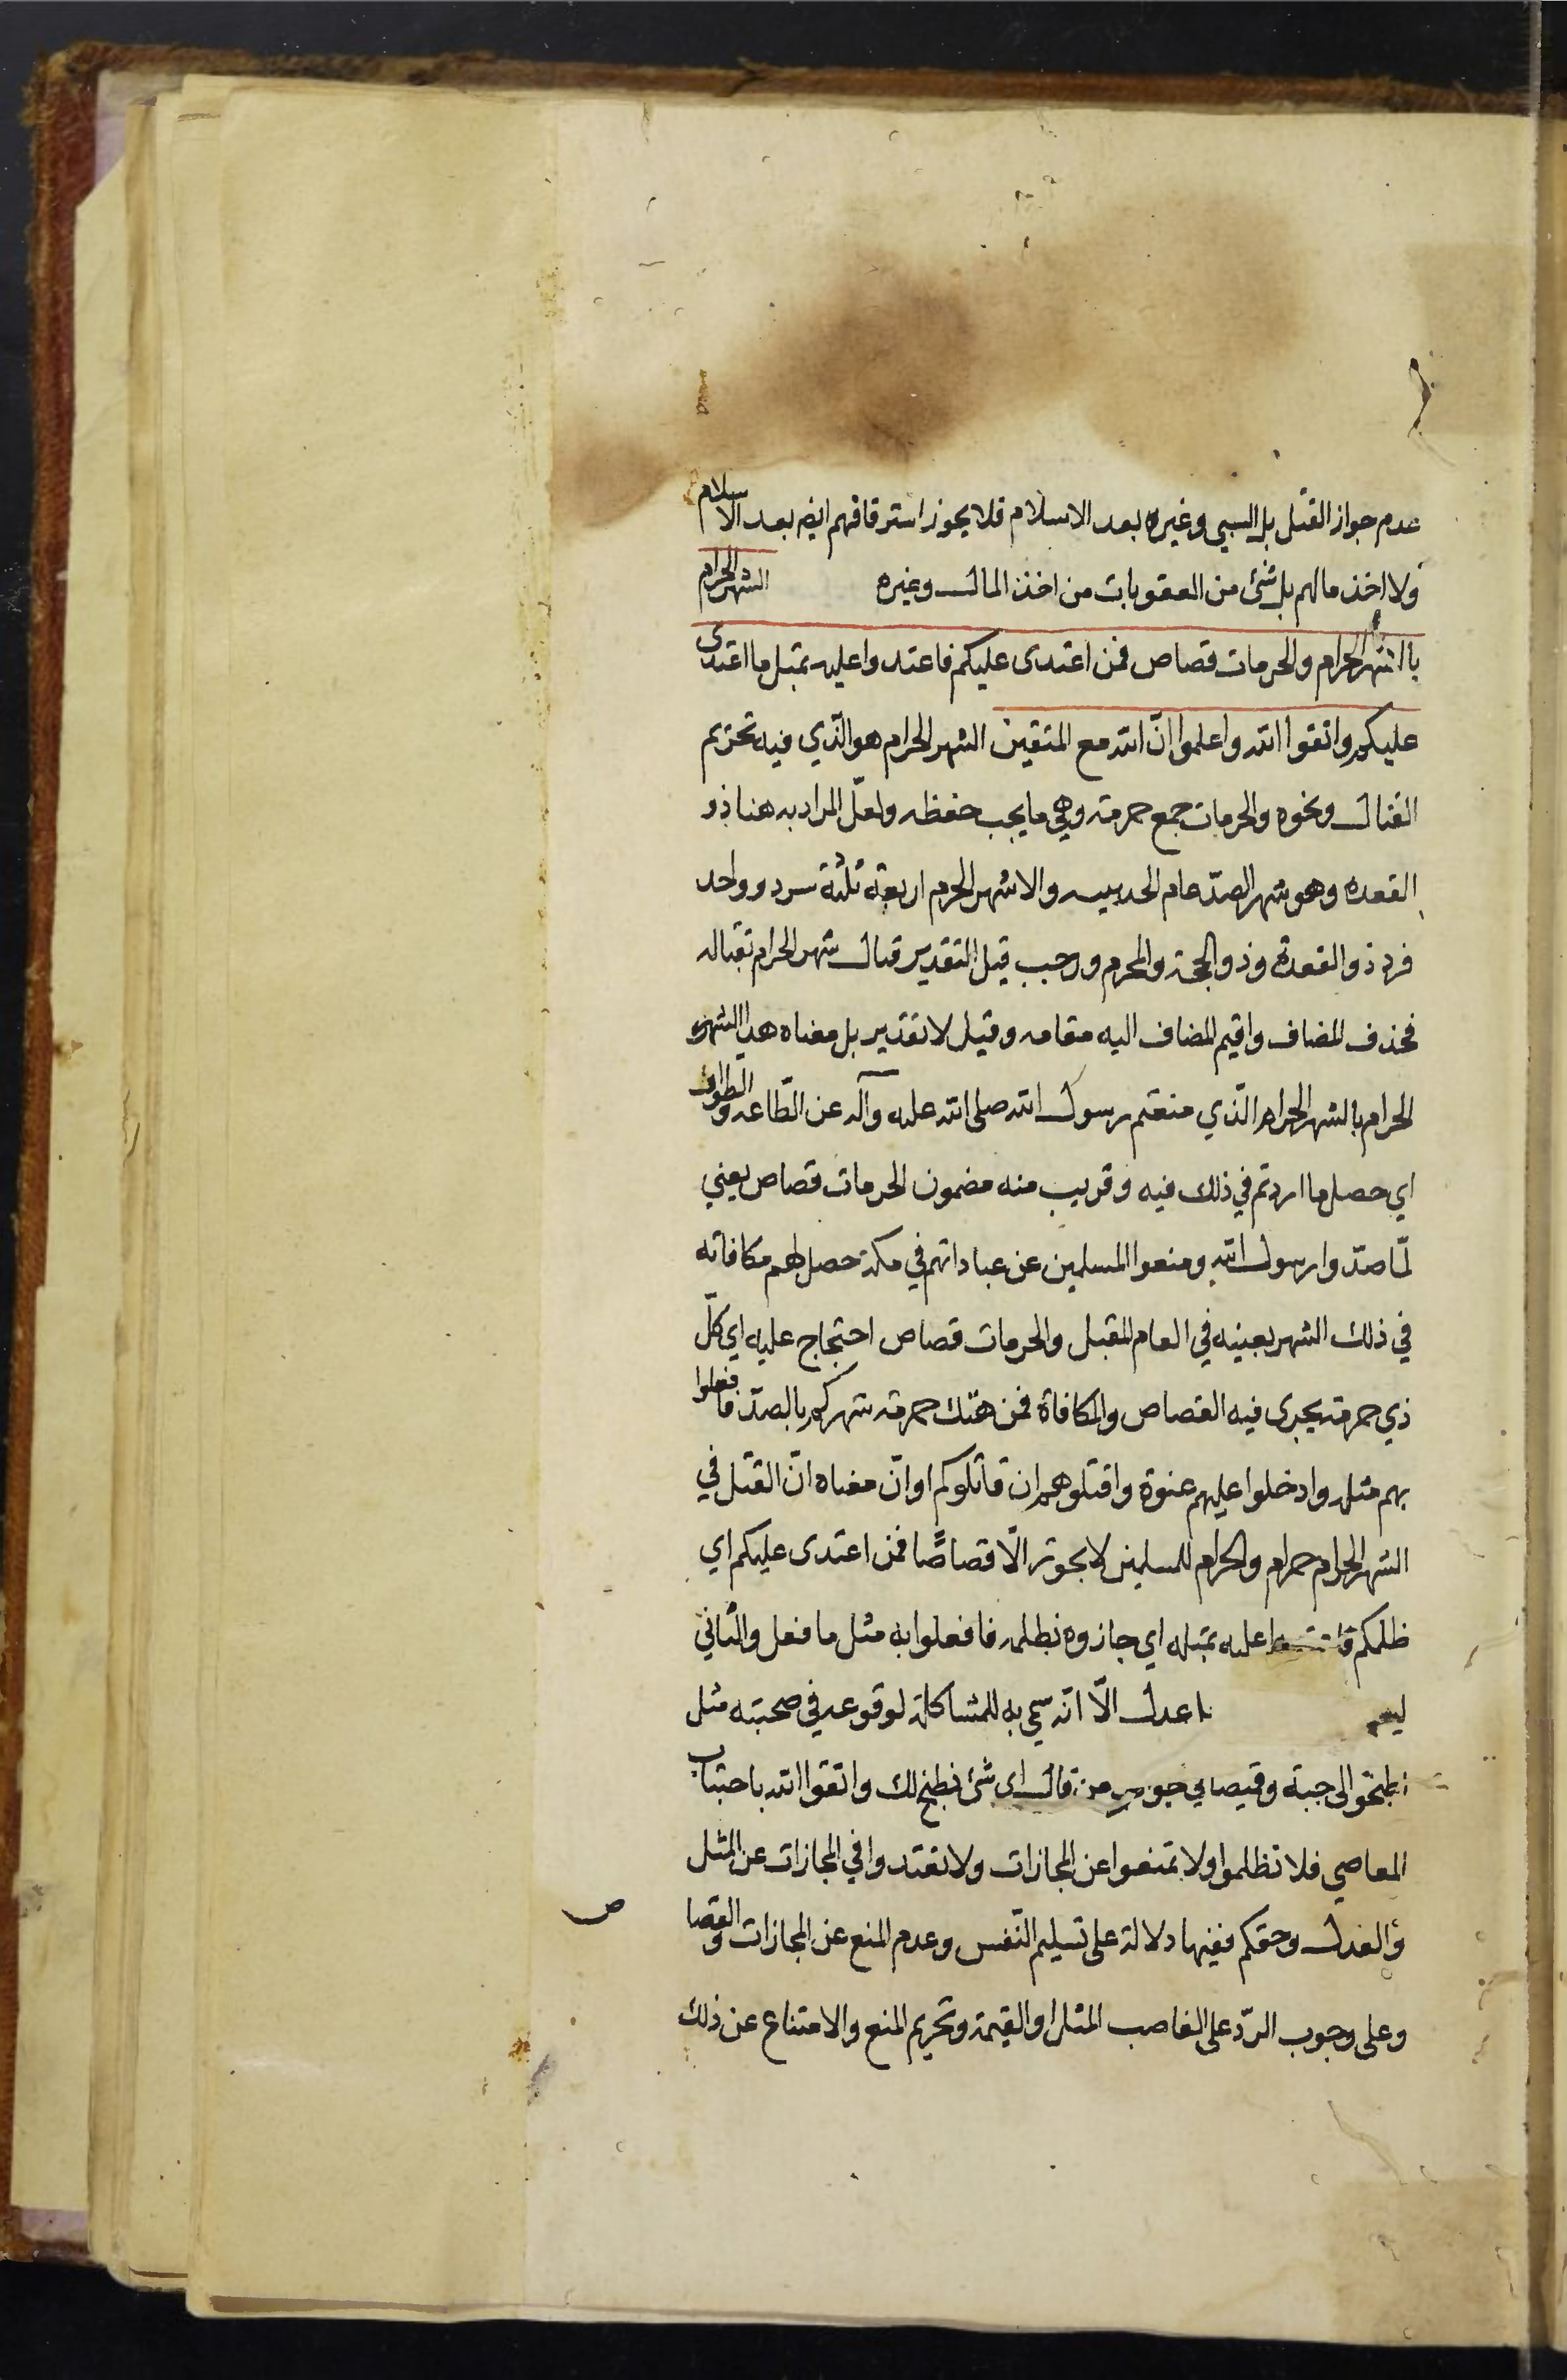 عدم جواز القتل بل السبي وغيره بعد الاسلام فلا يجوز استرقاقهم ايضه بعد الاسلام
ولا اخذ مالهم بل شئ من العقوبات من اخذ المال وغيره الشهر الحرام
بالشهر الحرام والحرمات قصاص فمن اعتدى عليكم فاعتدوا عليه بمثل ما اعتدى
عليكم واتقوا الله واعلموا انّ الله مع المتقين الشهر الحرام هو الّذي فيه تحريم
القتال ونحوه والحرمات جمع حرمة وهي ما يجب حفظه ولعلّ المراد به هنا ذو
القعده وهو شهر الصدّ عام الحديبيه والاشهر الحرم اربعة ثلثة سرد وواحد
فرد ذو القعدة وذو الحجة والمحرم ورجب قيل التقدير قتال شهر الحرام بقتاله
فحذف المضاف واقيم المضاف اليه مقامه وقيل لا تقدير بل معناه هذا الشهر
الحرام بالشهر الحرام الّذي منعتم رسول الله صلى الله عليه وآله عن الطّاعه والطواف
اي حصل ما اردتم في ذلك فيه وقريب منه مضمون الحرمات قصاص يعني
لمّا صدّوا رسول الله ومنعوا المسلمين عن عباداتهم في مكة حصل لهم مكافاته
في ذلك الشهر بعينه في العام المقبل والحرمات قصاص احتجاج عليه اي كلّ
ذي حرمة يجرى فيه القصاص والمكافاة فمن هتك حرمة شهركم بالصدّ فافعلوا
بهم مثله وادخلوا عليهم عنوة واقتلوهم ان قاتلوكم او انّ معناه انّ القتل في
الشهر الحرام حرام والحرام للمسلمين لا يجوز الّا قصاصًا فمن اعتدى عليكم اي
ظلمكم عليه بمثله اي جازوه بظلمه فافعلوا به مثل ما فعل والثاني
عدل الّا انّه سمّي به للمشاكلة لوقوعه في صحبته مثل
اطبخوا لي جبة وقميصا في جواب من قال اى شئ نطبخ لك واتقوا الله باجتناب
المعاصي فلا تظلموا ولا تمنعوا عن المجازات ولا تعتدوا في المجازات عن المثل
والعدل وحقكم ففيها دلالة على تسليم النّفس وعدم المنع عن المجازات والقصا
ص
وعلى وجوب الردّ على الغاصب المثل او القيمة وتحريم المنع والامتناع عن ذلك